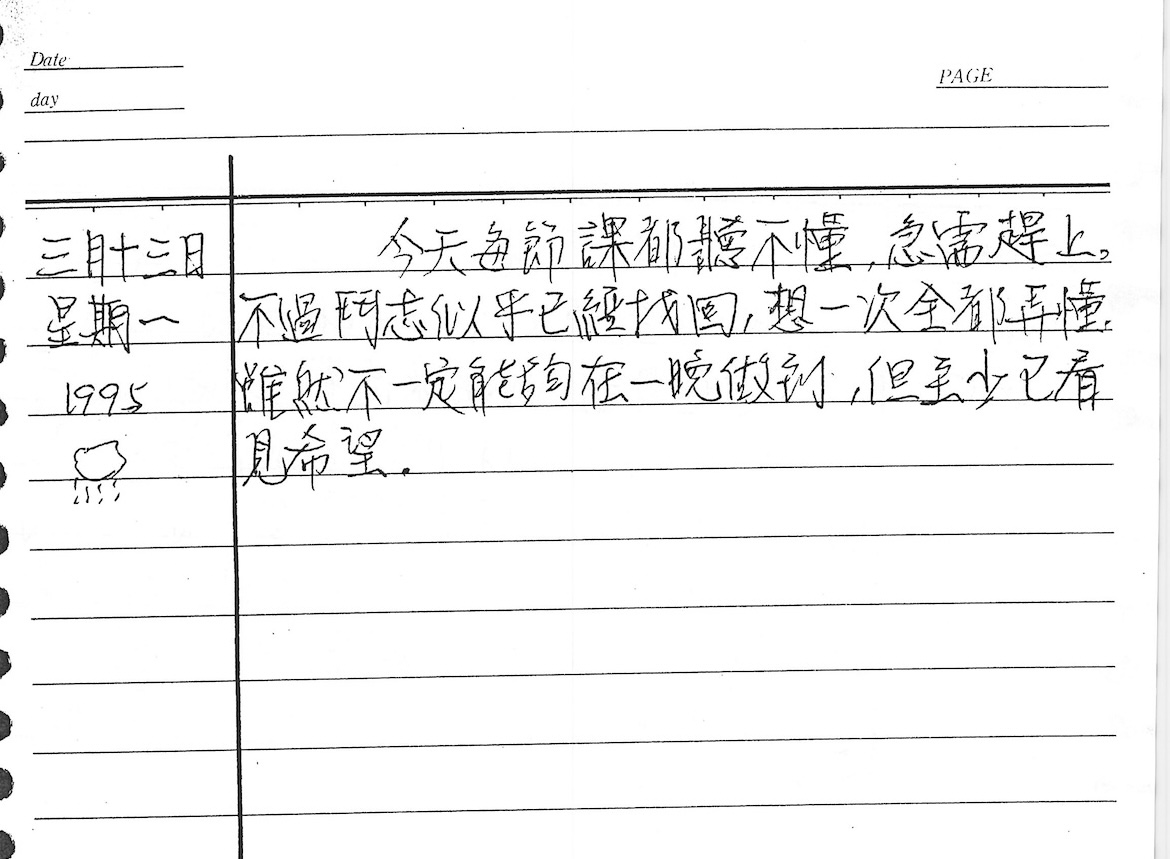 Date
day
PAGE
三月十三日
星期一
1995
今天每節課都聽不懂,急需趕上。
不過鬥志似乎已經找回,想一次全都弄懂.
雖然不一定能夠在一晚做到,但至少已看
見希望.